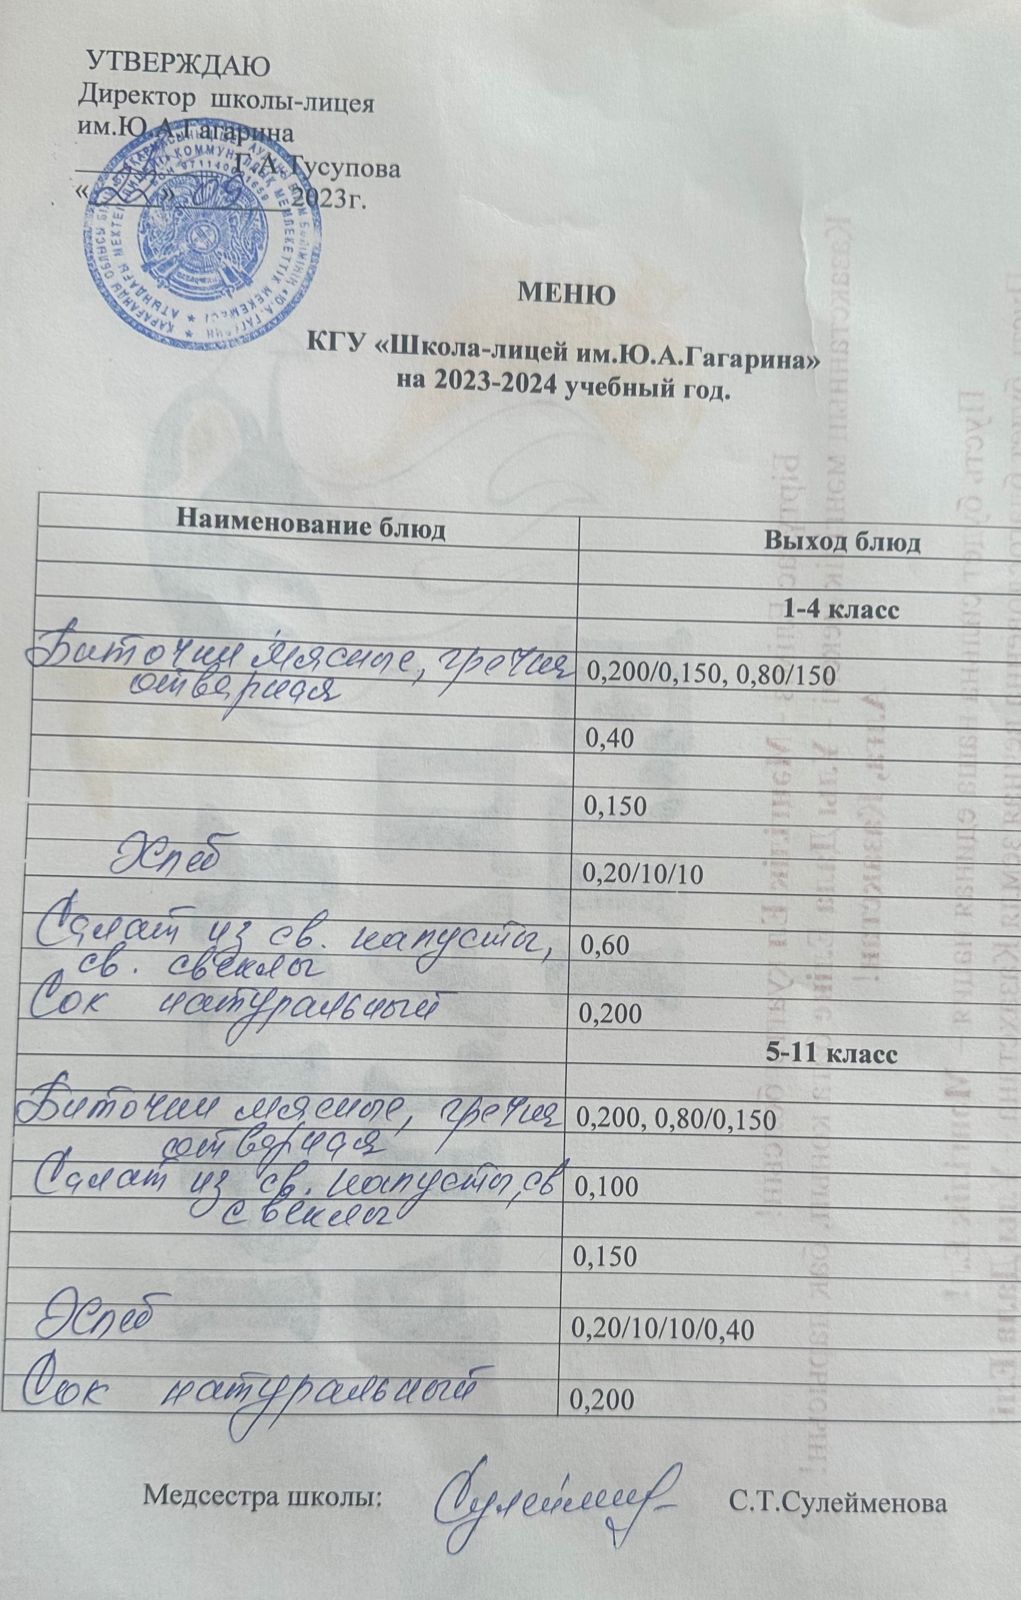 УТВЕРЖДАЮ
Директор школы-лицея
им.Ю.А.Гагарина
Г.А.Тусупова
« » 09 2023г.
МЕНЮ
КГУ «Школа-лицей им.Ю.А.Гагарина»
на 2023-2024 учебный год.
Наименование блюд Выход блюд
1-4 класс
Биточки мясные, гречка 0,200/0,150, 0,80/150
отварная
0,40
0,150
Хлеб 0,20/10/10
Салат из св. капусты, 0,60
св. свеклы
Сок натуральный 0,200
5-11 класс
Биточки мясные, гречка 0,200, 0,80/0,150
отварная
Салат из св. капусты, св 0,100
свеклы
0,150
Хлеб 0,20/10/10/0,40
Сок натуральный 0,200
Медсестра школы: С.Т.Сулейменова